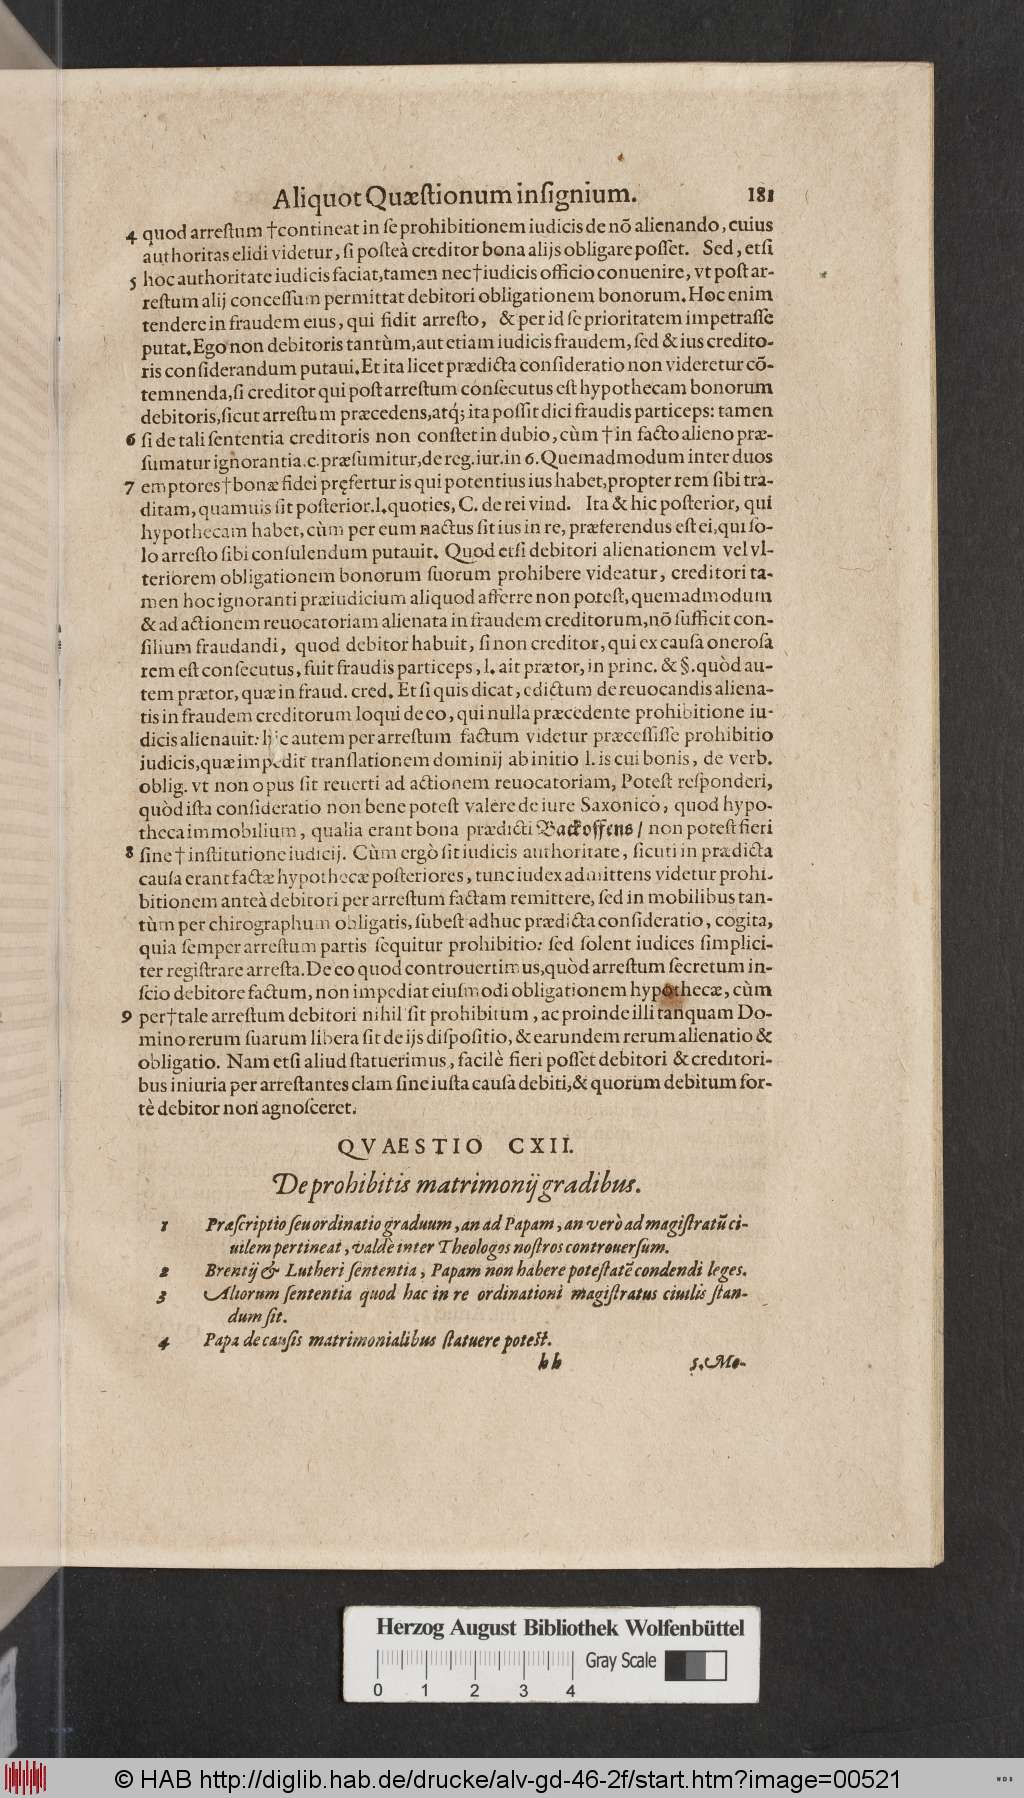 Aliquot Quæſtionum inſignium. 181
4 quod arreſtum †contineat in ſe prohibitionem iudicis de nõ alienando, cuius
authoritas elidi videtur, ſi poſteà creditor bona alijs obligare poſſet. Sed, etſi
5 hoc authoritate iudicis faciat,tamen nec†iudicis officio conuenire, vt poſt ar-
reſtum alij conceſſum permittat debitori obligationem bonorum. Hoc enim
tendere in fraudem eius, qui fidit arreſto, & per id ſe prioritatem impetraſſe
putat. Ego non debitoris tantùm,aut etiam iudicis fraudem, ſed & ius credito-
ris conſiderandum putaui. Et ita licet prædicta conſideratio non videretur cõ-
temnenda,ſi creditor qui poſt arreſtum conſecutus eſt hypothecam bonorum
debitoris,ſicut arreſtum præcedens,atq́; ita poſſit dici fraudis particeps: tamen
6 ſi de tali ſententia creditoris non conſtet in dubio, cùm †in facto alieno præ-
ſumatur ignorantia.c.præſumitur,de reg.iur.in 6. Quemadmodum inter duos
7 emptores†bonæ fidei pręfertur is qui potentius ius habet,propter rem ſibi tra-
ditam, quamuis ſit poſterior.l.quoties, C. de rei vind. Ita & hic poſterior, qui
hypothecam habet, cùm per eum nactus ſit ius in re, præferendus eſt ei,qui ſo-
lo arreſto ſibi conſulendum putauit. Quod etſi debitori alienationem vel vl-
teriorem obligationem bonorum ſuorum prohibere videatur, creditori ta-
men hoc ignoranti præiudicium aliquod afferre non poteſt, quemadmodum
& ad actionem reuocatoriam alienata in fraudem creditorum,nõ ſufficit con-
ſilium fraudandi, quod debitor habuit, ſi non creditor, qui ex cauſa oneroſa
rem eſt conſecutus, fuit fraudis particeps, l. ait prætor, in princ. & §.quòd au-
tem prætor, quæ in fraud. cred. Et ſi quis dicat, edictum de reuocandis aliena-
tis in fraudem creditorum loqui de eo, qui nulla præcedente prohibitione iu-
dicis alienauit: hic autem per arreſtum factum videtur præceſſiſſe prohibitio
iudicis,quæ impedit tranſlationem dominij ab initio l. is cui bonis, de verb.
oblig. vt non opus ſit reuerti ad actionem reuocatoriam, Poteſt reſponderi,
quòd iſta conſideratio non bene poteſt valere de iure Saxonico, quod hypo-
theca immobilium, qualia erant bona prædicti Backoffens / non poteſt fieri
8 ſine † inſtitutione iudicij. Cùm ergò ſit iudicis authoritate, ſicuti in prædicta
cauſa erant factæ hypothecæ poſteriores, tunc iudex admittens videtur prohi-
bitionem anteà debitori per arreſtum factam remittere, ſed in mobilibus tan-
tùm per chirographum obligatis, ſubeſt adhuc prædicta conſideratio, cogita,
quia ſemper arreſtum partis ſequitur prohibitio: ſed ſolent iudices ſimplici-
ter regiſtrare arreſta. De eo quod controuertimus,quòd arreſtum ſecretum in-
ſcio debitore factum, non impediat eiuſmodi obligationem hypothecæ, cùm
9 per†tale arreſtum debitori nihil ſit prohibitum, ac proinde illi tanquam Do-
mino rerum ſuarum libera ſit de ijs diſpoſitio, & earundem rerum alienatio &
obligatio. Nam etſi aliud ſtatuerimus, facilè fieri poſſet debitori & creditori-
bus iniuria per arreſtantes clam ſine iuſta cauſa debiti,& quorum debitum for-
tè debitor non agnoſceret.
QVAESTIO CXII.
De prohibitis matrimonij gradibus.
1 Præſcriptio ſeu ordinatio graduum, an ad Papam, an verò ad magiſtratũ ci-
uilem pertineat, valdè inter Theologos noſtros controuerſum.
2 Brentij & Lutheri ſententia, Papam non habere poteſtatẽ condendi leges.
3 Aliorum ſententia quod hac in re ordinationi magiſtratus ciuilis ſtan-
dum ſit.
4 Papa de cauſis matrimonialibus ſtatuere poteſt.
hh 5. Mo-
Herzog August Bibliothek Wolfenbüttel
Gray Scale
0 1 2 3 4
© HAB http://diglib.hab.de/drucke/alv-gd-46-2f/start.htm?image=00521